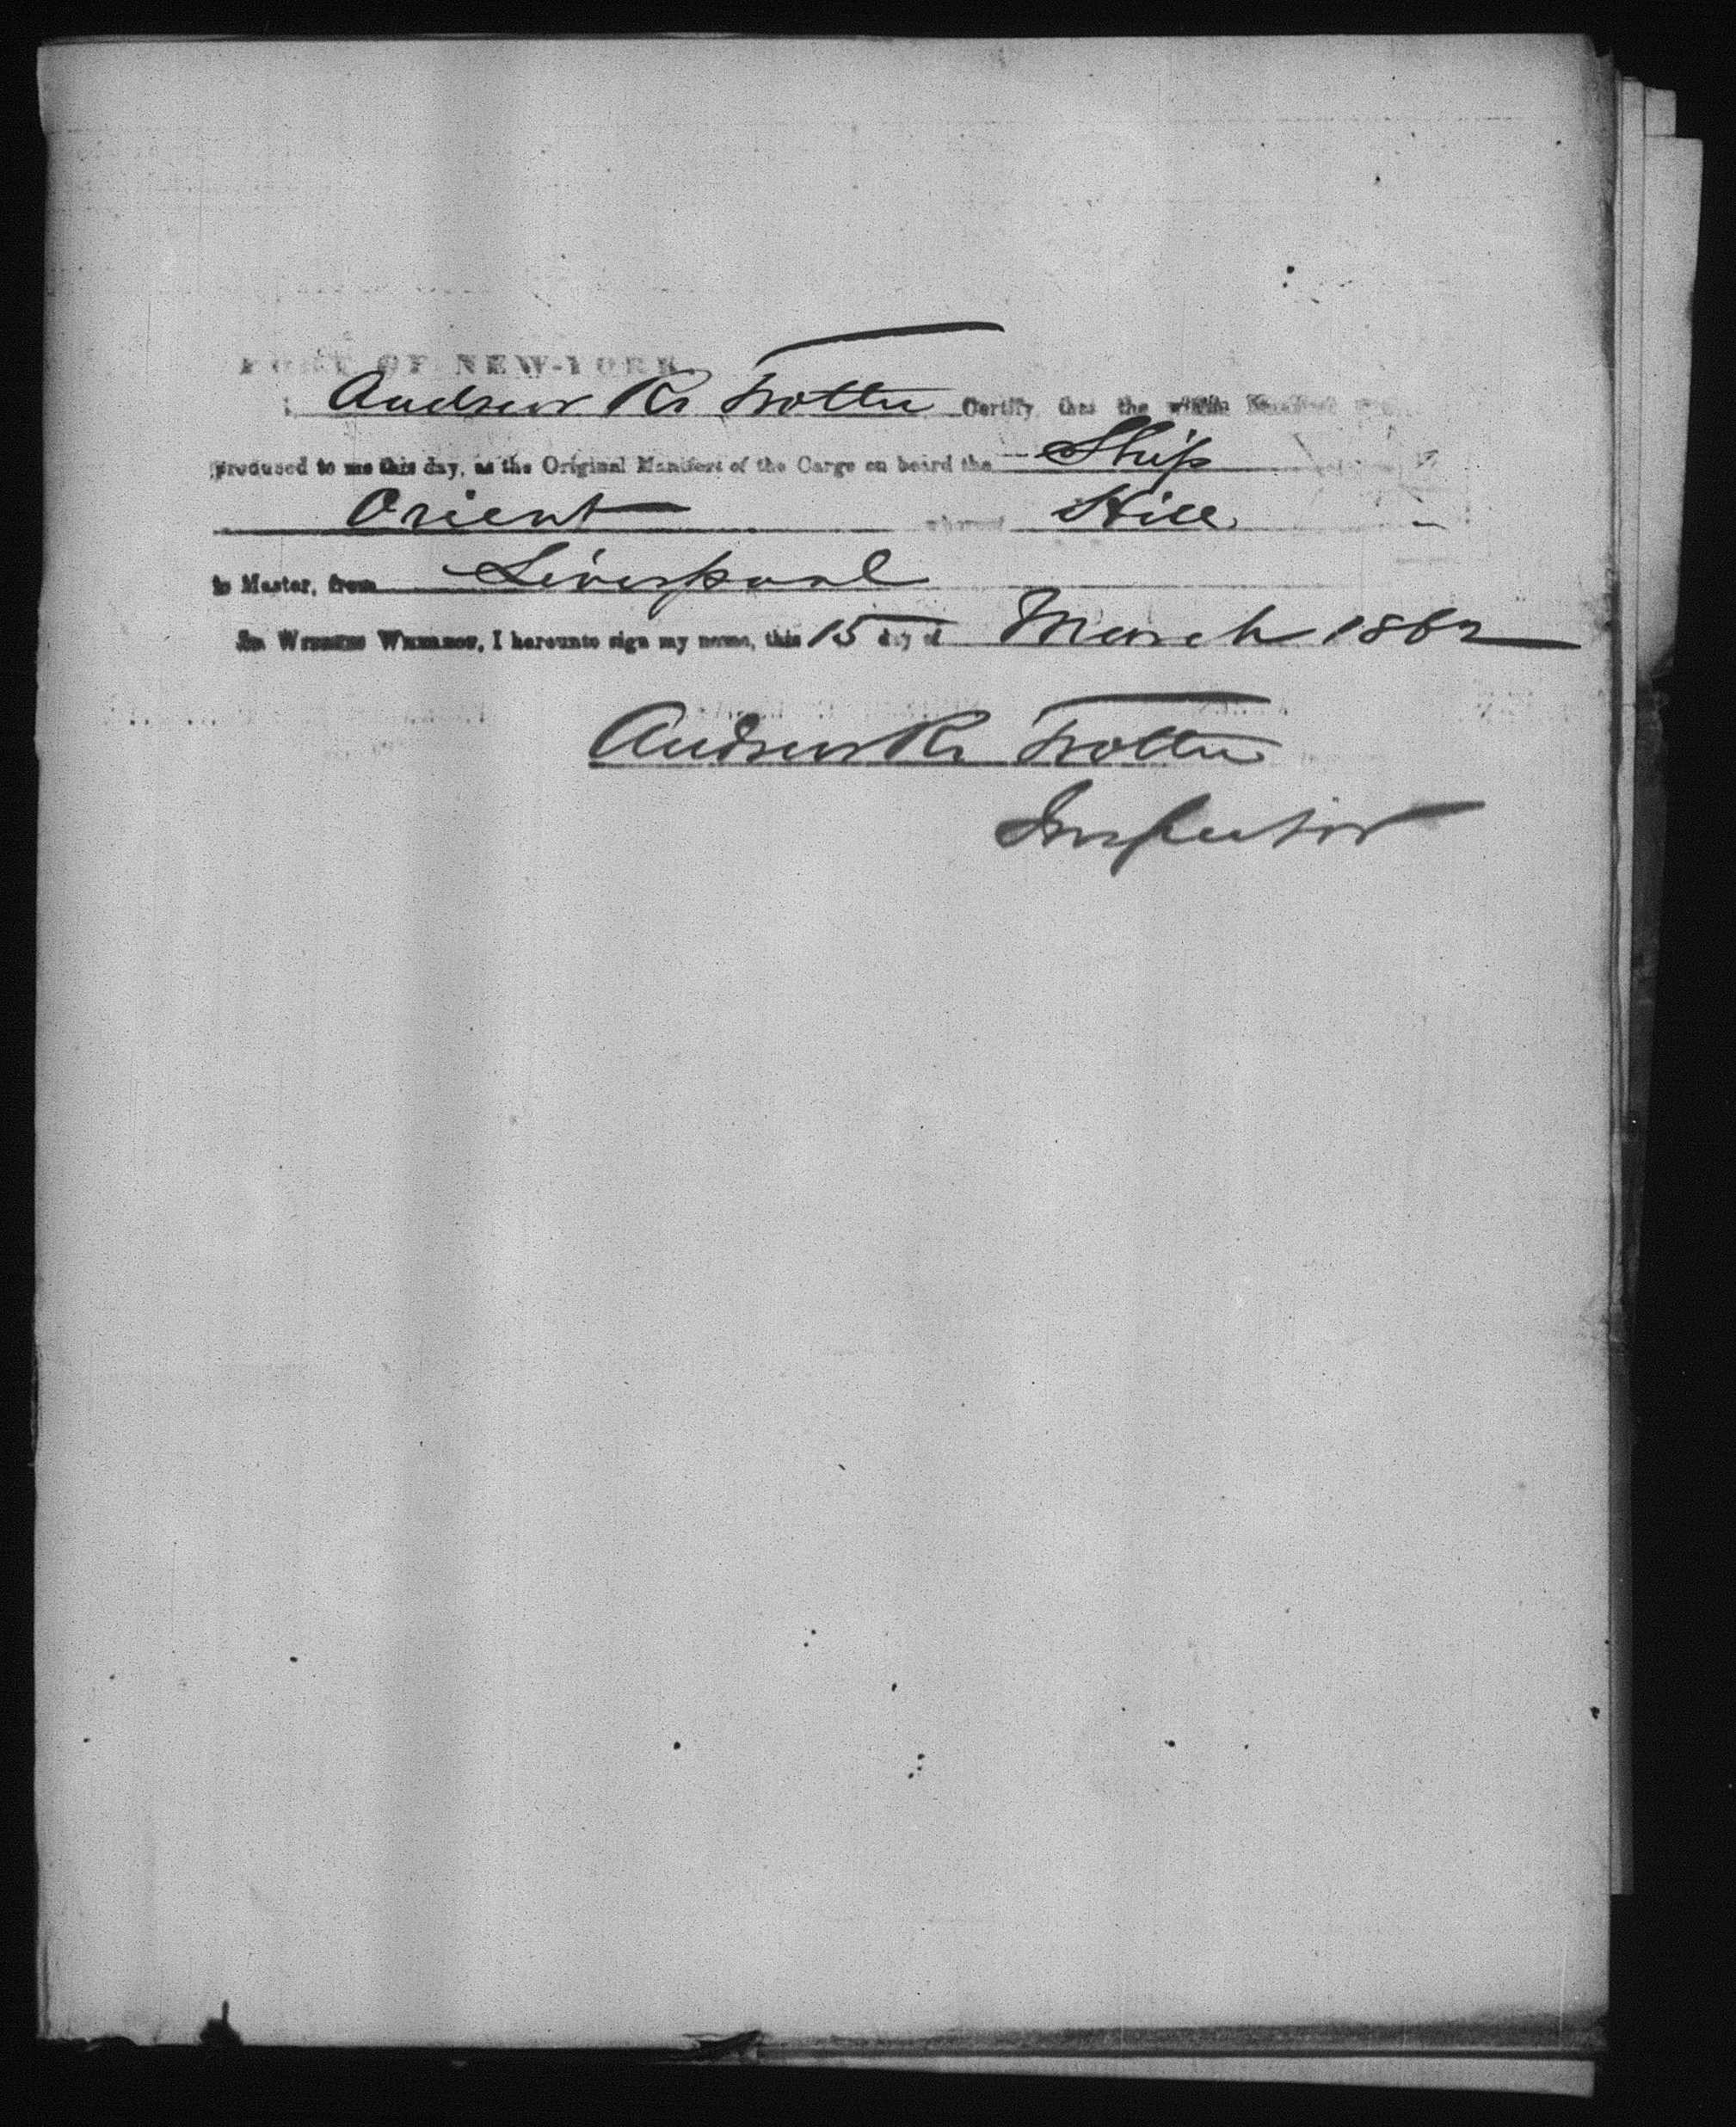 PORT OF NEW-YORK
I Andrew R. Trotter Certify, that the within Manifest was
produced to me this day, as the Original Manifest of the Cargo on board the Ship
Orient whereof Hill
is Master, from Liverpool
In Witness Whereof, I hereunto sign my name, this 15 day of March 1862
Andrew R. Trotter
Inspector